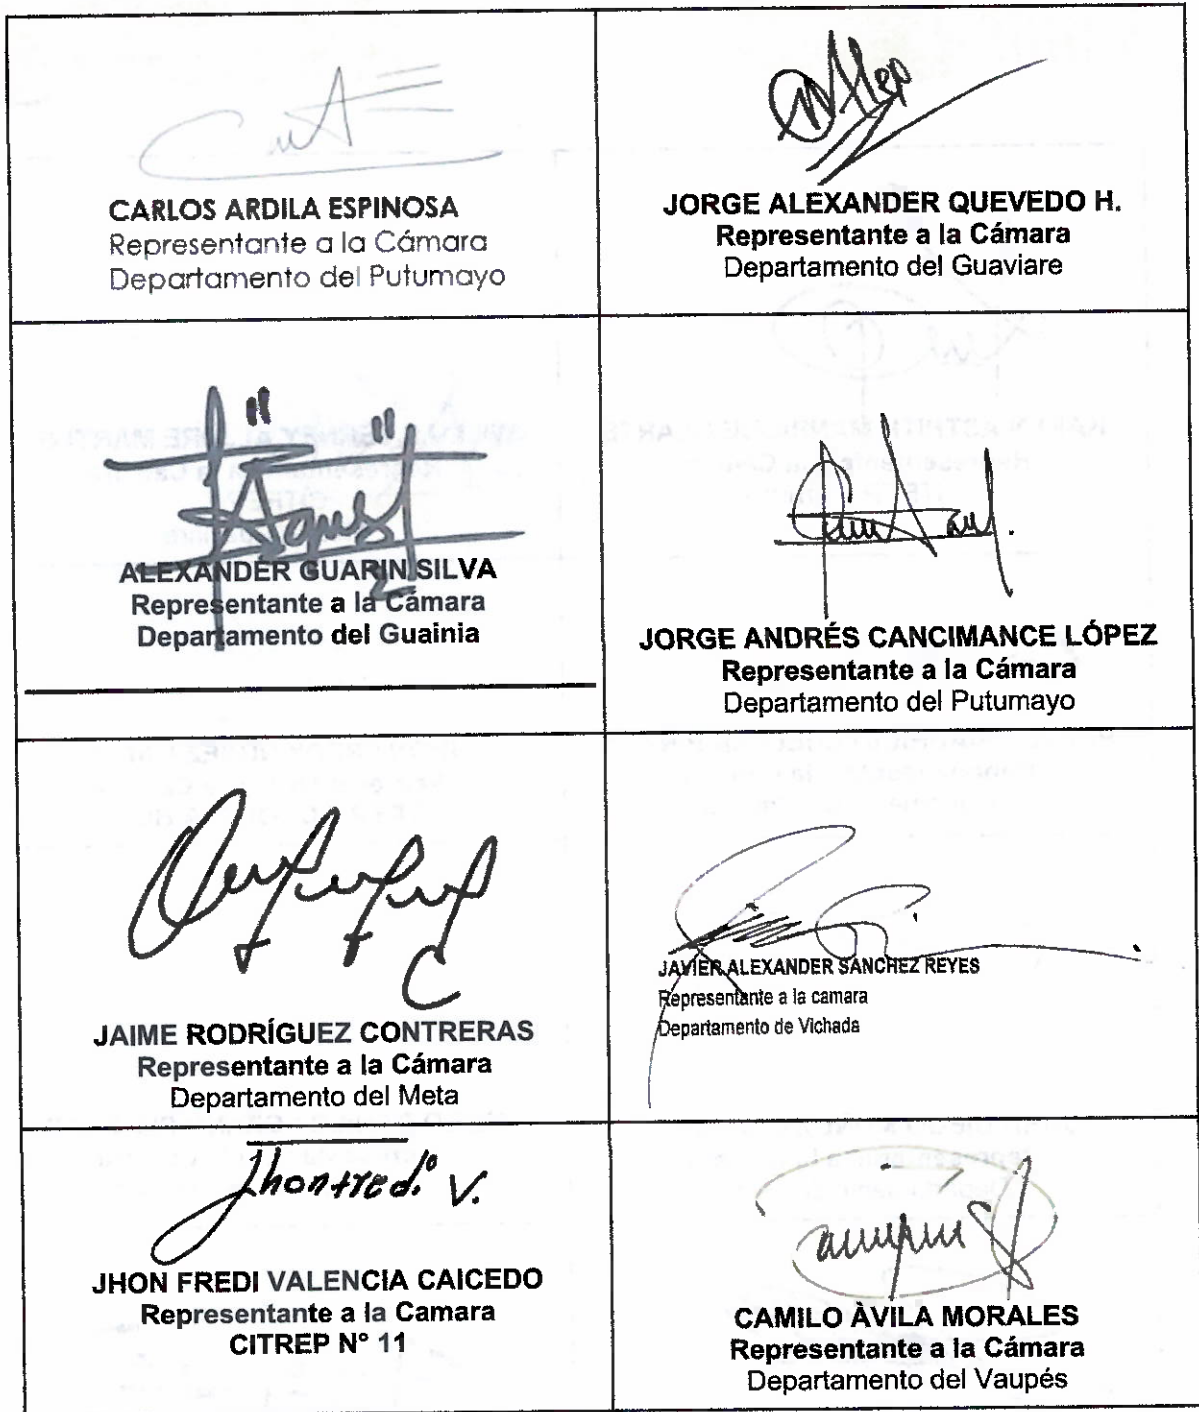 CARLOS ARDILA ESPINOSA
Representante a la Cámara
Departamento del Putumayo
JORGE ALEXANDER QUEVEDO H.
Representante a la Cámara
Departamento del Guaviare
ALEXANDER GUARIN SILVA
Representante a la Cámara
Departamento del Guainia
JORGE ANDRÉS CANCIMANCE LÓPEZ
Representante a la Cámara
Departamento del Putumayo
JAIME RODRÍGUEZ CONTRERAS
Representante a la Cámara
Departamento del Meta
JAVIER ALEXANDER SANCHEZ REYES
Representante a la camara
Departamento de Vichada
Jhonfredi V.
JHON FREDI VALENCIA CAICEDO
Representante a la Camara
CITREP N° 11
CAMILO ÀVILA MORALES
Representante a la Cámara
Departamento del Vaupés